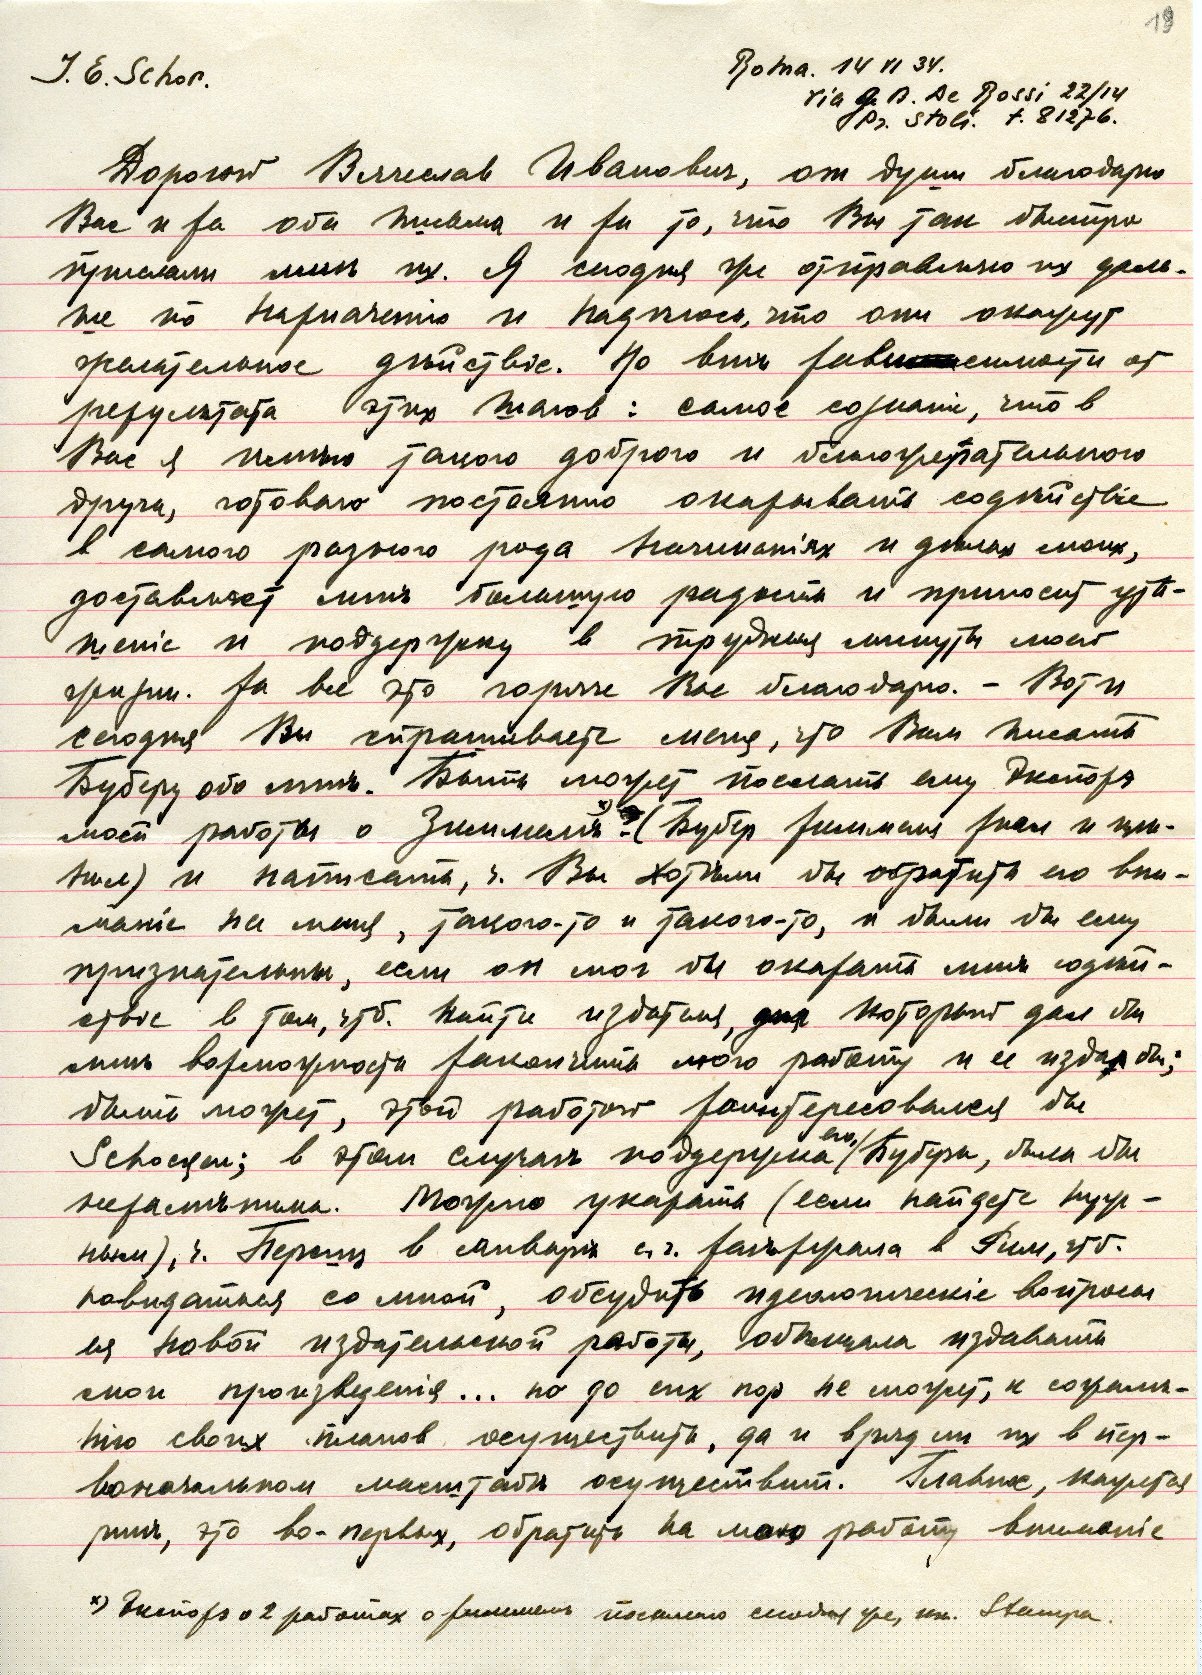 19
J. E. Schor.
Roma. 14 VI 34.
Via G. B. De Rossi 22/14
t. 81276.
Дорогой Вячеслав Иванович, от души благодарю
Вас и за оба письма и за то, что Вы так быстро
прислали мнѣ их. Я сегодня же отправляю их даль-
ше по назначенію и надѣюсь, что они окажут
желательное дѣйствіе. Но внѣ зависимости от
результата этих шагов: самое сознаніе, что в
Вас я имѣю такого доброго и благожелательного
друга, готоваго постоянно оказывать содѣйствіе
в самого разного рода начинаніях и дѣлах моих,
доставляет мнѣ большую радость и приносит утѣ-
шеніе и поддержку в трудныя минуты моей
жизни. За все это горячо Вас благодарю. – Вот и
сегодня Вы спрашиваете меня, что Вам писать
Буберу обо мнѣ. Быть может послать ему Экспозэ
моей работы о Зиммелѣ x) (Бубер Зиммеля знал и цѣ-
нил) и написать, ч. Вы хотѣли бы обратить его вни-
маніе на меня, такого-то и такого-то, и были бы ему
признательны, если он мог бы оказать мнѣ содѣй-
ствіе в том, чтб. найти издателя, который дал бы
мнѣ возможность закончить мою работу и ее издал бы;
быть может, этой работой заинтересовался бы
Schocken; в этом случаѣ поддержка его, Бубера, была бы
незамѣнима. Можно указать (если найдете нуж-
ным), ч. Персиц в январѣ с. г. заѣзжала в Рим, чтб.
повидаться со мной, обсудить идеологическіе вопросы
ея новой издательской работы, обѣщала издавать
мои произведенія... но до сих пор не может, к сожалѣ-
нію своих планов осуществить, да и врядли их в пер-
воначальном масштабѣ осуществит. Главное, кажется
мнѣ, это во-первых, обратить на мою работу вниманіе
x) Экспозэ о 2 работах о Зиммелѣ посылаю сегодня же, как Stampa.